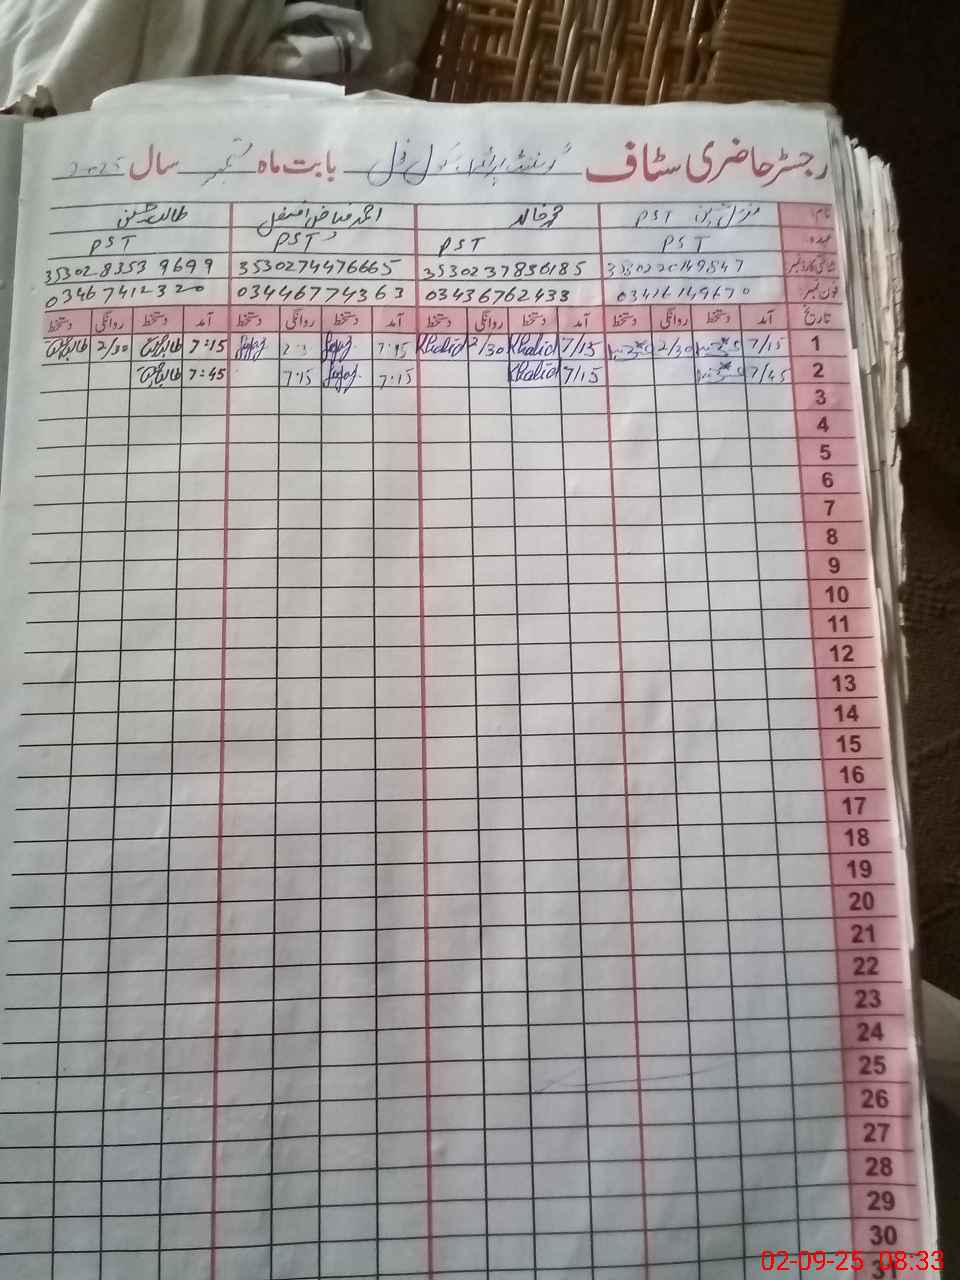 رجسٹر حاضری سٹاف گورنمنٹ پرائمری سکول بابت ماہ ستمبر سال 2025
نام: PST محمد خالد طالب حسین
عہدہ PST PST PST PST
شناختی کارڈ نمبر 3530237836185 3530274476665 3530283539699
فون نمبر: 03436762433 03446774363 03467412320
تاریخ آمد دستخط روانگی دستخط آمد دستخط روانگی دستخط آمد دستخط روانگی دستخط آمد دستخط روانگی دستخط
1 7/15 2/30 7/15 Khalid 2/30 Khalid 7:15 7:15 طالب حسین 2/30 طالب حسین
2 7/45 7/15 Khalid 7:15 7:15 7:45 طالب حسین
3
4
5
6
7
8
9
10
11
12
13
14
15
16
17
18
19
20
21
22
23
24
25
26
27
28
29
30
02-09-25 08:33